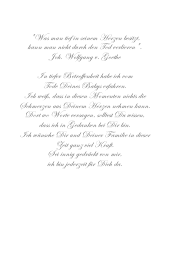 "Was man tief in seinem Herzen besitzt,
kann man nicht durch den Tod verlieren".
Joh. Wolfgang v. Goethe
In tiefer Betroffenheit habe ich vom
Tode Deines Babys erfahren.
Ich weiß, dass in diesen Momenten nichts die
Schmerzen aus Deinem Herzen nehmen kann.
Dort wo Worte versagen, sollst Du wissen,
dass ich in Gedanken bei Dir bin.
Ich wünsche Dir und Deiner Familie in dieser
Zeit ganz viel Kraft.
Sei innig gedrückt von mir,
ich bin jederzeit für Dich da.